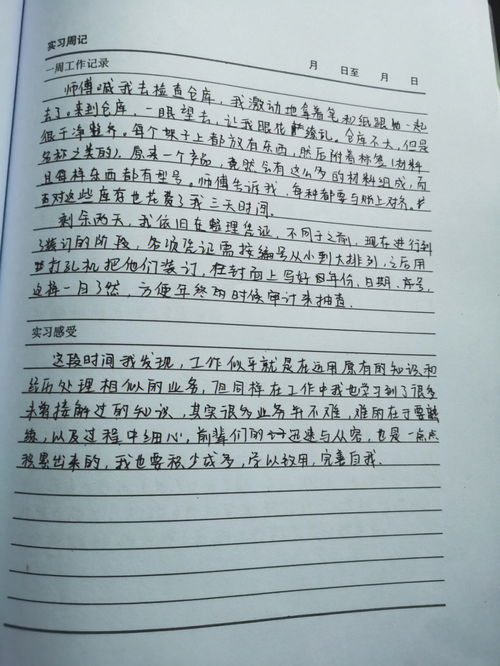 实习周记
一周工作记录 月 日至 月 日
师傅喊我去检查仓库，我激动地拿着笔和纸跟她一起
去了。来到仓库，一眼望去，让我眼花缭乱。仓库不大，但是
很干净整齐。每个架子上都放有东西，然后附着标签(材料
名称之类的)。原来一个产品，竟然会有这么多的材料组成，而
且每样东西都有型号。师傅告诉我，每种都要与账上对齐。
对这些库存也花费了我三天时间。
剩余两天，我依旧在整理凭证，不同于之前，现在进行到
了装订的阶段，每项凭证需按编号从小到大排列，之后用
打孔机把他们装订，在封面上写好年份、日期、序号，
这样一目了然，方便年终的时候审计来抽查。
实习感受
这段时间我发现，工作似乎就是在运用原有的知识和
经历处理相似的业务，但同样在工作中我也学习到了很多
未曾接触过的知识，其实很多业务并不难，难的在于要熟
练，以及过程中细心，前辈们的迅速与从容，也是一点点
积累出来的，我也要积少成多，学以致用，完善自我。